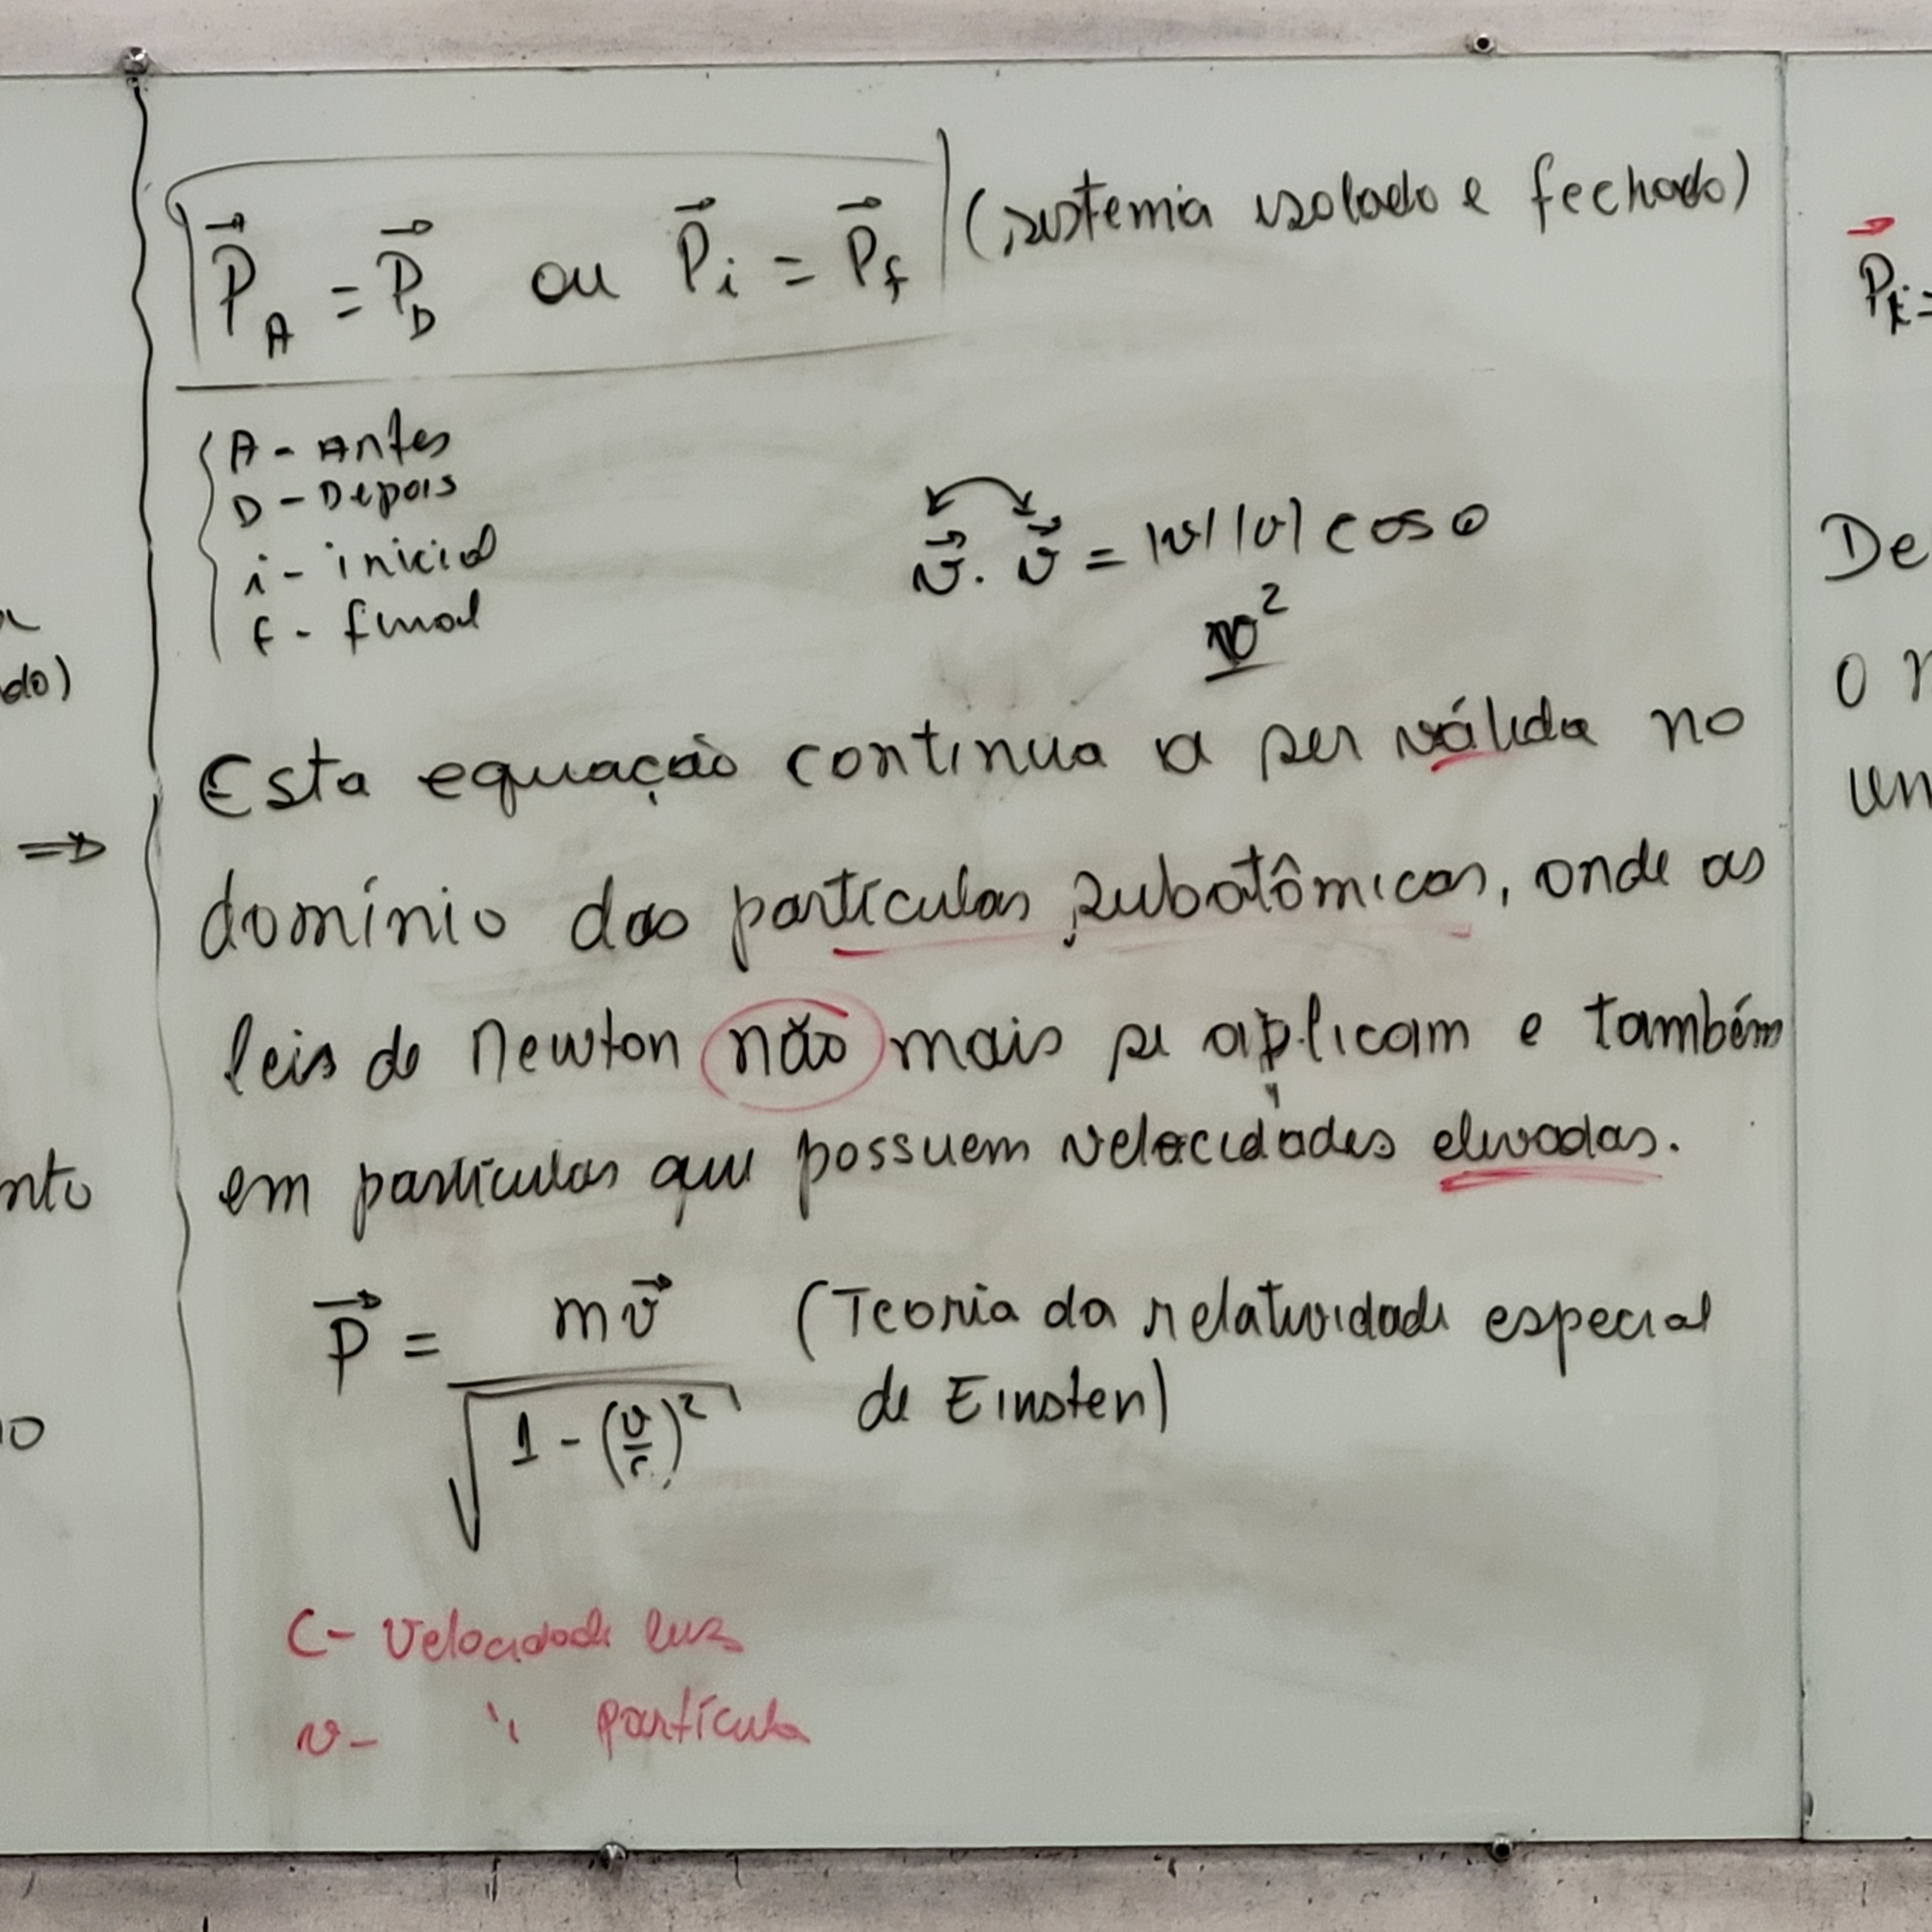 P⃗_A = P⃗_D ou P⃗_i = P⃗_f (sistema isolado e fechado)
A - Antes
D - Depois
i - inicial
f - final
v⃗ . v⃗ = |v| |v| cos 0
v²
Esta equação continua a ser válida no
domínio das partículas subatômicas, onde as
leis de Newton não mais se aplicam e também
em partículas que possuem velocidades elevadas.
P⃗ = mv⃗ / √(1 - (v/c)²) (Teoria da relatividade especial
de Einsten)
C - Velocidade luz
v - " partícula
do)
⇒
nto
P⃗i =
De